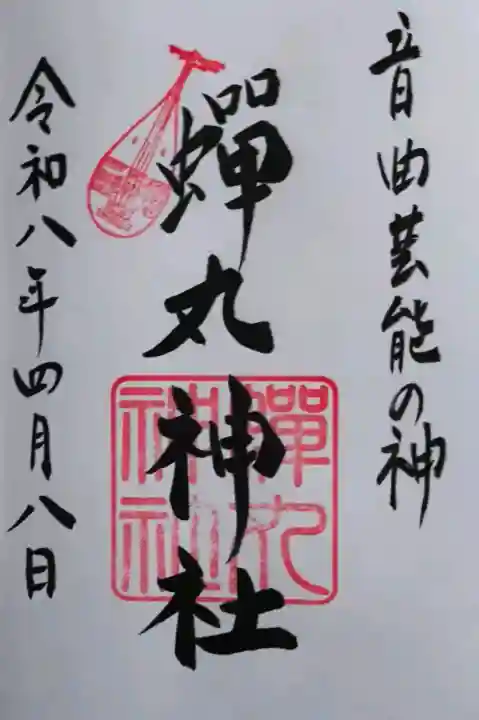 音曲芸能の神
蟬丸神社
蟬丸
神社
令和八年四月八日